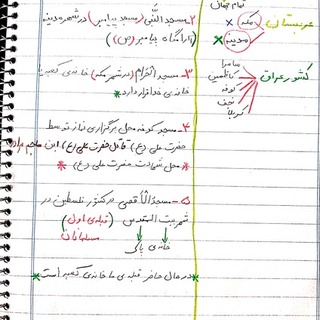 تمام جهان
عربستان
مکه
مدینه
کشور عراق
سامرا
کاظمین
کوفه
نجف
کربلا
۲- مسجد النّبی (مسجد پیامبر) در شهر مدینه
(آرامگاه پیامبر (ص))
۳- مسجد الحرام (در شهر مکه) خانه‌ی کعبه یا
خانه‌ی خدا قرار دارد
۴- مسجد کوفه محل برگزاری نماز توسط
حضرت علی (ع) قاتل حضرت علی (ع) ابن ملجم مرادی
محل شهادت حضرت علی (ع)
۵- مسجد الأقصی در کشور فلسطین در
شهر بیت المقدس (قبله‌ی اول)
مسلمانان
خانه‌ی پاکی
در حال حاضر قبله‌ی ما خانه‌ی کعبه است